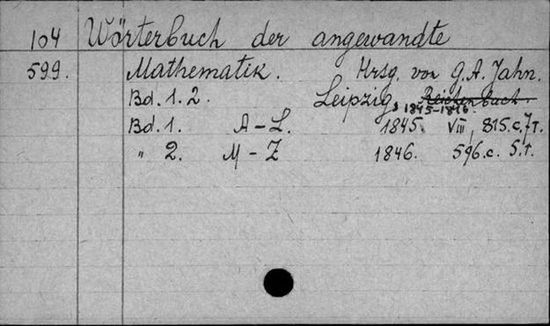 104 Wörterbuch der angewandte
599. Mathematik. Hrsg. von G. A. Jahn.
Bd. 1. 2. Leipzig, Reichenbach.
1845-1846.
Bd. 1. A-L. 1845. VIII, 815. c. 7 т.
" 2. M-Z 1846. 596. c. 5. т.